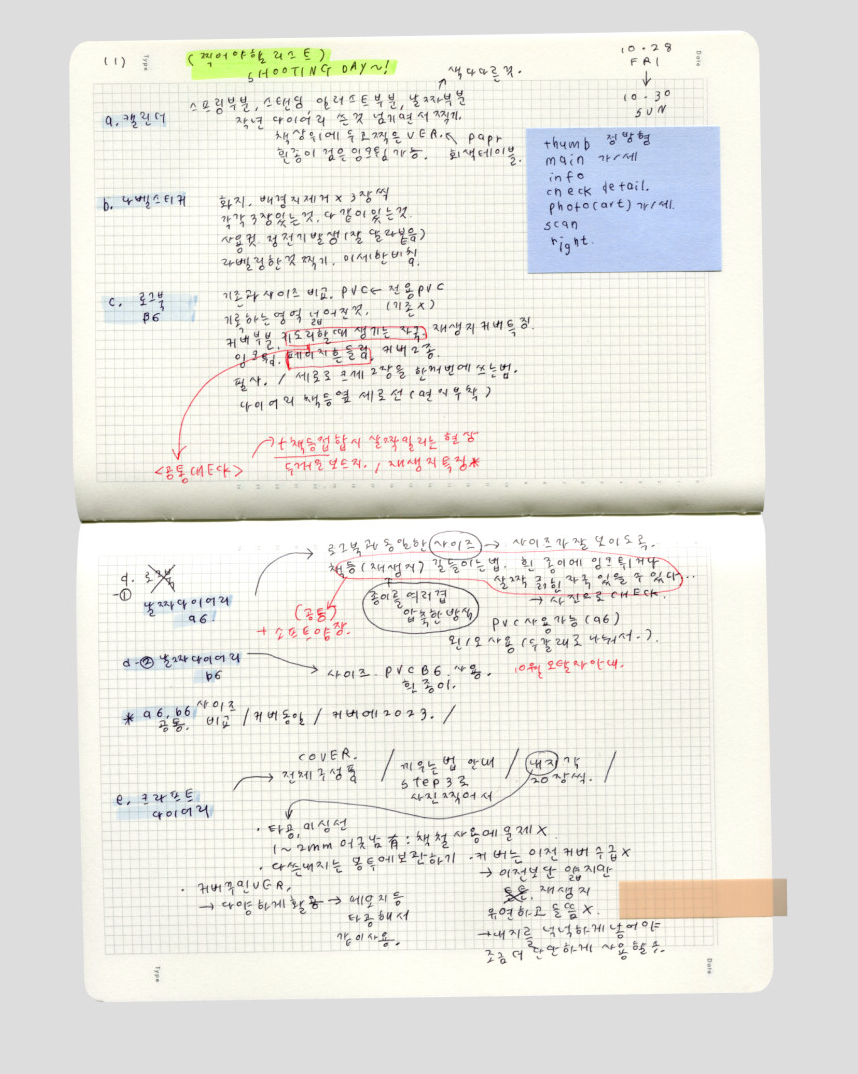 (1)
Type
(찍어야할 리스트)
SHOOTING DAY~!
색다따른것.
10.28
FRI
10.30
SUN
Date
a. 캘린더
스프링부분, 스탠딩 일러스트부분, 날짜부분
작년 다이어리 쓴것 넘기면서 찍기.
책상위에 두고찍은 VER. papr
흰종이 검은잉크펜 가능. 회색테이블.
thumb 정방형
main 가/세
info
check detail.
photo(art) 가/세.
scan
right.
b. 라벨스티커
화지. 배경지제거 x 3장씩
각각 3장있는것. 다같이있는것.
사용컷. 정전기발생(잘 달라붙음)
라벨링한것 찍기. 미세한비침
c. 로그북
B6
기존과 사이즈 비교. PVC ← 전용PVC
기록하는영역 넓어진것. (기존X)
커버부분. 제도리할때 생기는 자국. 재생지커버특징.
페이지흔들림. 커버2종.
필사. / 세로로 크게 2장을 한꺼번에 쓰는법.
다이어리 책등옆 세로선(면지부착)
<공통CHECK>
+책등접합시 살짝밀리는 현상
두꺼운보드지. / 재생지특징*
로그북과 동일한 사이즈 → 사이즈가 잘 보이도록.
d. 로그북
-① 날짜다이어리
a6.
책등(재생지) 길들이는법. 흰 종이에 잉크튀거나
살짝 긁힌자국 있을 수 있다..
→ 사진으로 CHECK.
(공통)
+ 소프트양장.
종이를여러겹
압축한방식
PVC사용가능(a6)
왼/오 사용(두갈래로 나눠서-.)
d-② 날짜다이어리
b6
사이즈. PVC B6 사용.
흰 종이.
10월 오탈자안내.
* a6, b6 사이즈
공통. 비교 / 커버동일 / 커버에 2023. /
e. 크라프트
다이어리
COVER.
전체구성품 / 끼우는법 안내 / 내지 각 /
step 3로 20장씩.
사진찍어서
· 타공, 미싱선
1~2mm 어긋남 有 : 책철 사용에 문제X
· 다쓴내지는 봉투에보관하기 · 커버는 이전커버수급X
→ 이전보단 얇지만
튼튼, 재생지
유연하고 들뜸X.
→ 내지를 넉넉하게넣어야
조금 더 단단하게 사용할수.
· 커버꾸민VER.
→ 다양하게활용 → 메모지등
타공해서
같이사용.
Type
Date